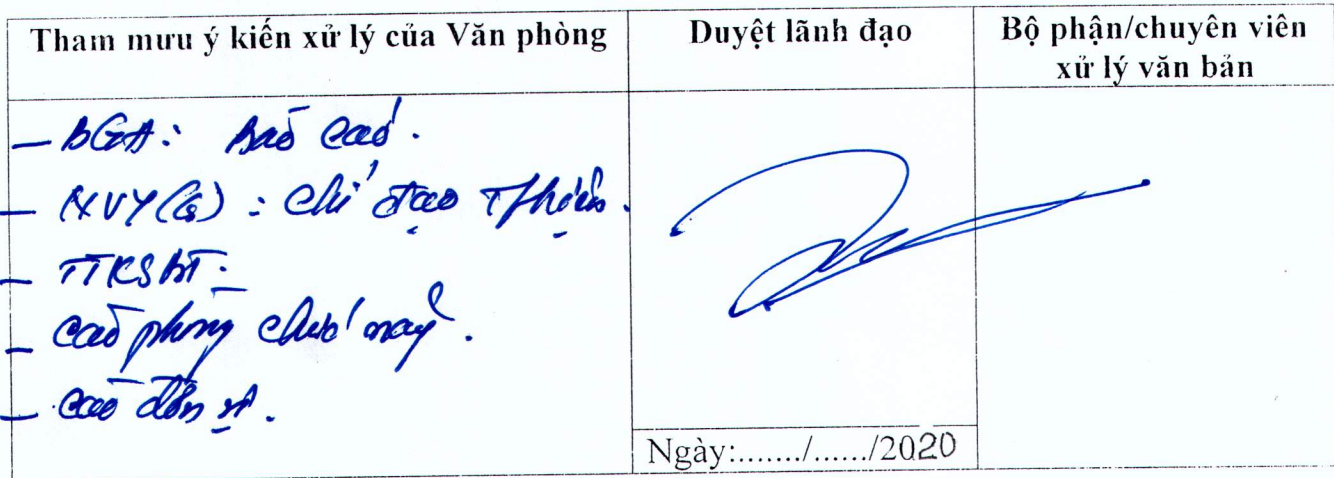 Tham mưu ý kiến xử lý của Văn phòng
Duyệt lãnh đạo
Bộ phận/chuyên viên
xử lý văn bản
- BGĐ: Báo cáo.
- NVY(): Chỉ đạo T/hiện.
- TTKSBT.
- Các phòng chức năng.
- Các đơn vị.
Ngày:....../....../2020